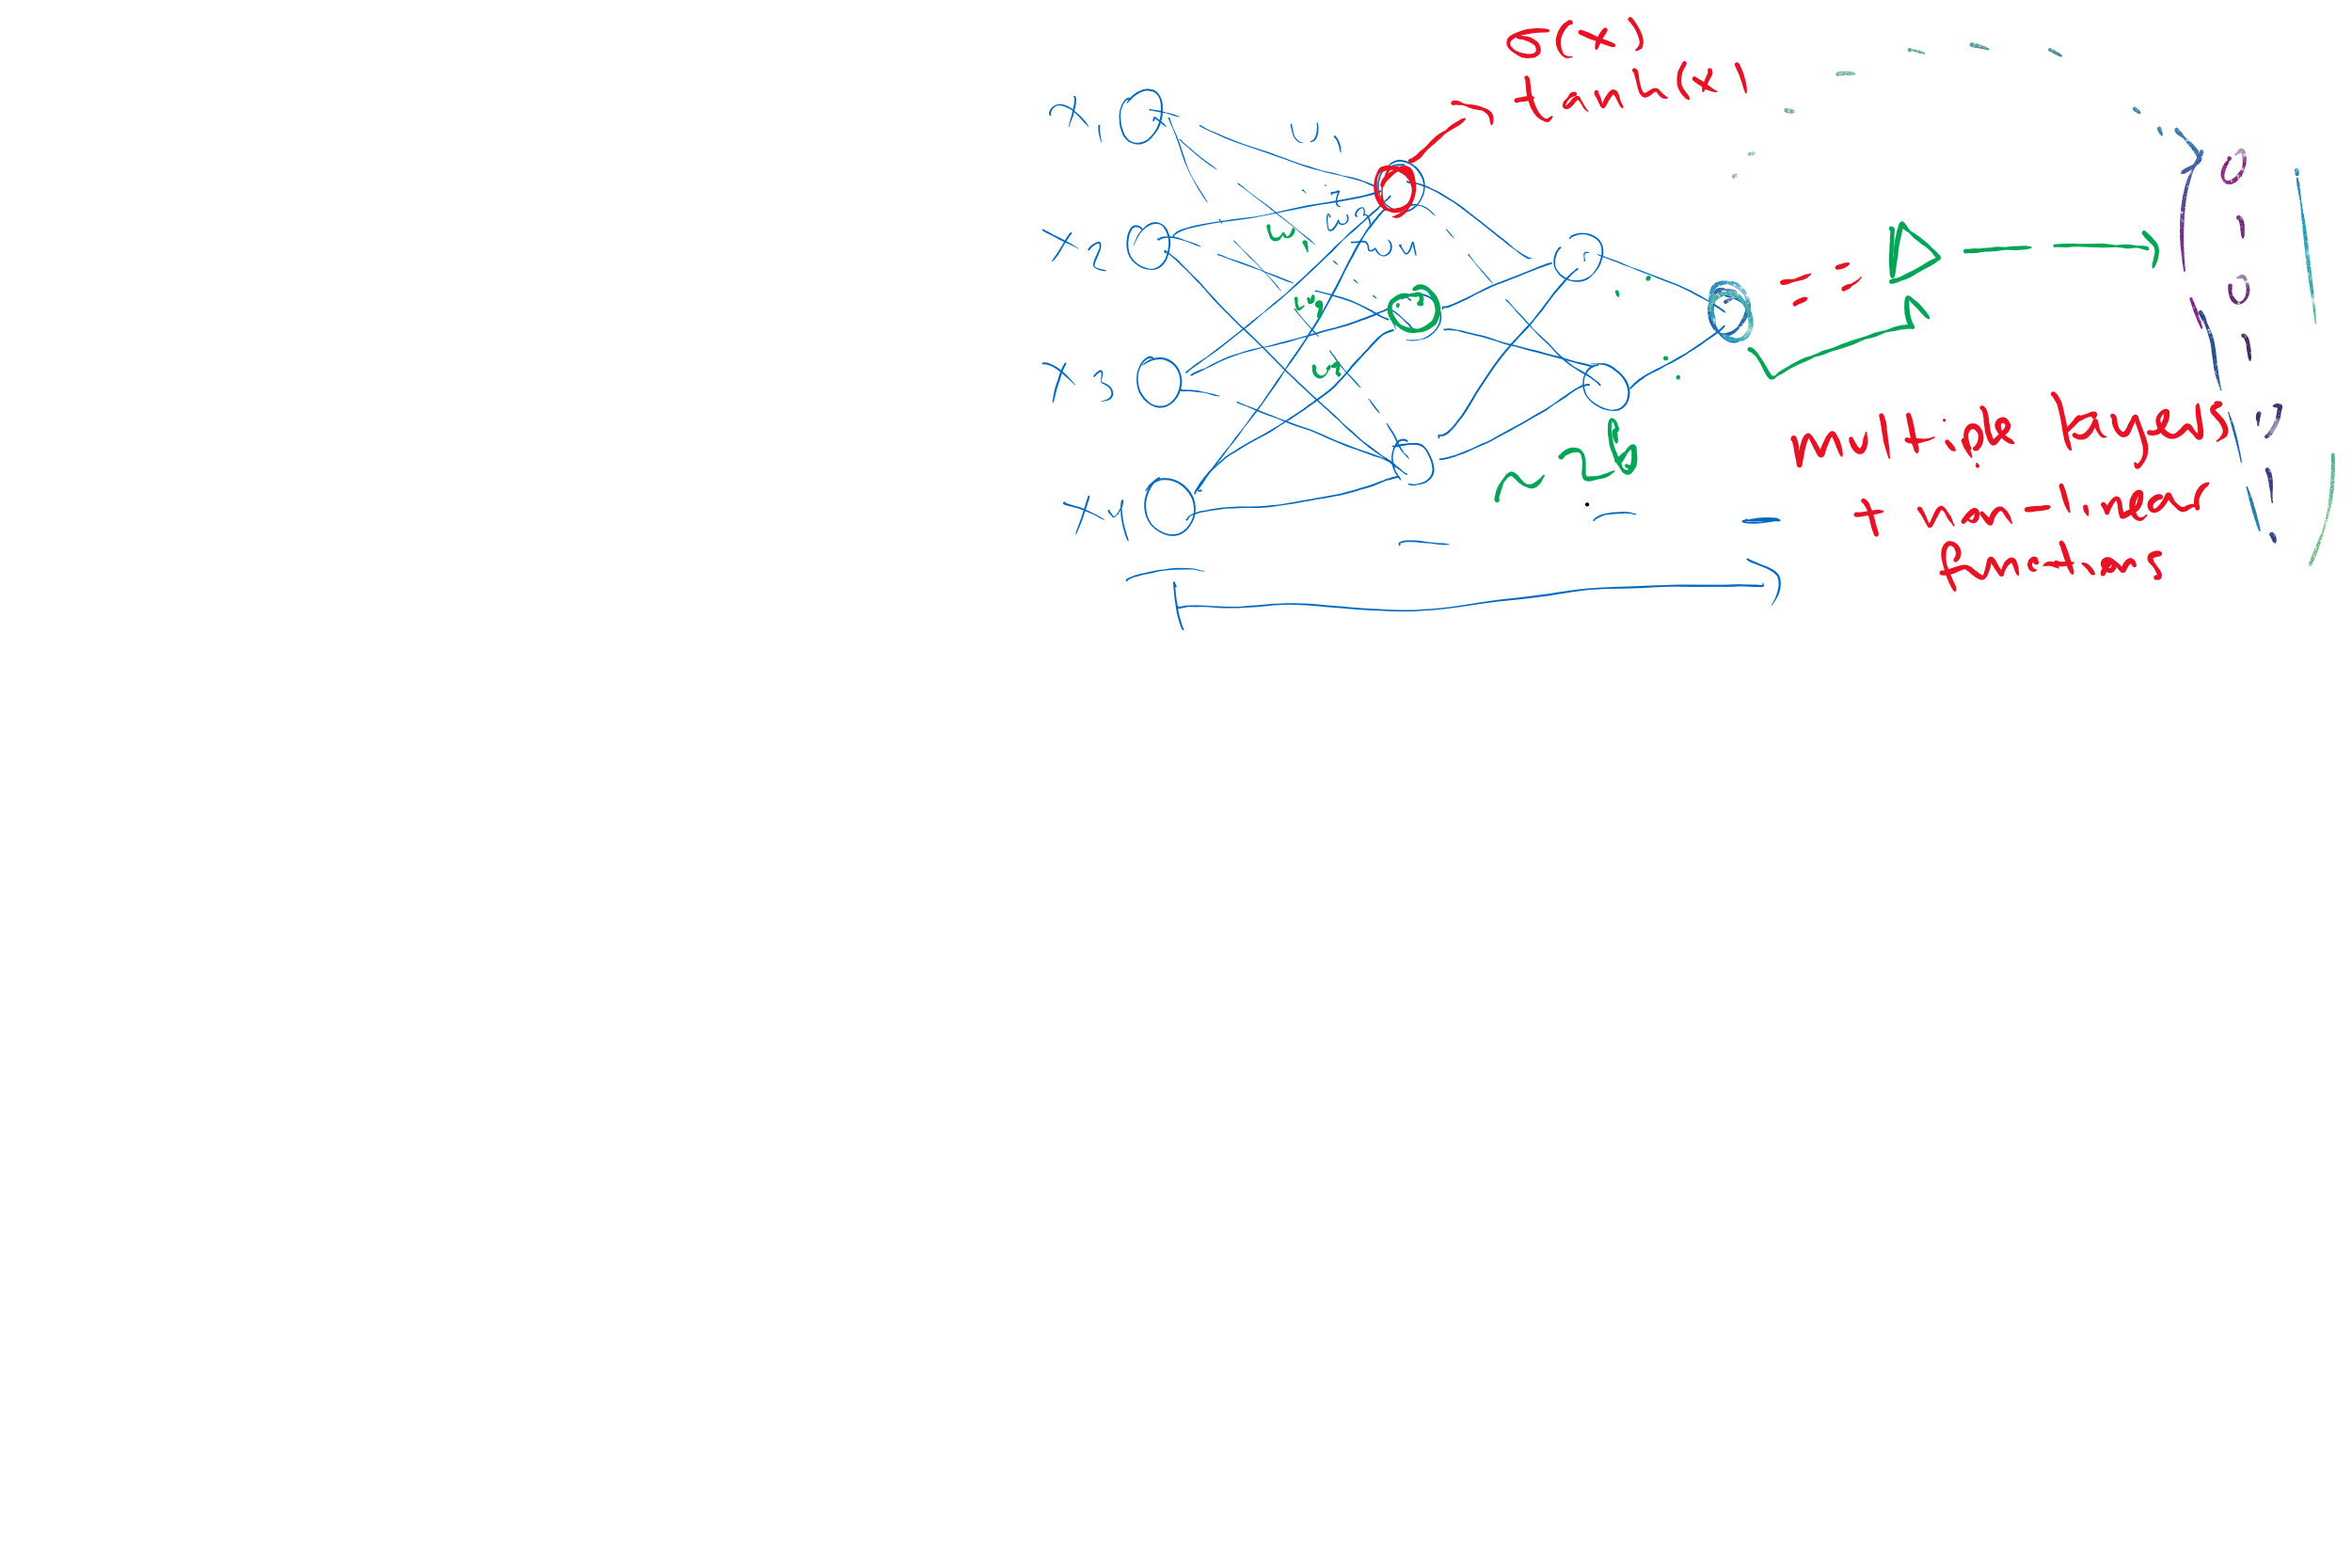 σ(x)
tanh(x)
x1
w1
w2
w3
w4
w1
x2
x3
x4
~ 20
0
1
0
1
multiple layers
+ non-linear
functions